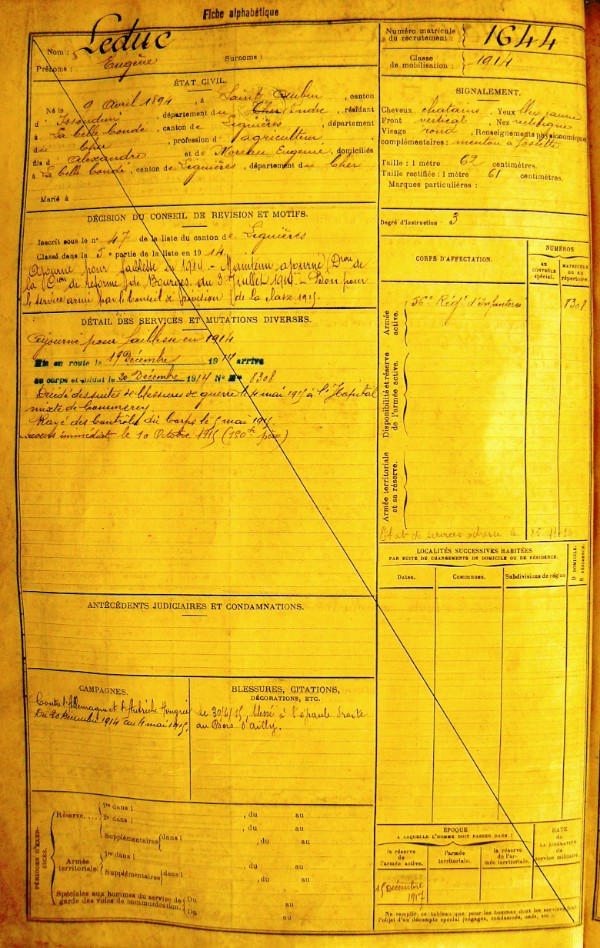 Fiche alphabétique
Nom : Leduc
Prénoms : Eugène Surnoms :
Numéro matricule du recrutement : 1644
Classe de mobilisation : 1914
ÉTAT CIVIL.
Né le 9 avril 1894, à Saint Aubin, canton
d'Issoudun, département de l'Indre, résidant
à La Celle Condé, canton de Lignières, département
du Cher, profession d'agriculteur,
fils d'Alexandre et de Moreau Eugénie, domiciliés
à La Celle Condé, canton de Lignières, département du Cher
Marié à
SIGNALEMENT.
Cheveux chatains Yeux bleu jaune
Front vertical Nez rectiligne
Visage rond Renseignements physionomiques
complémentaires : menton à fossette
Taille : 1 mètre 62 centimètres.
Taille rectifiée : 1 mètre 61 centimètres.
Marques particulières :
Degré d'instruction : 3
DÉCISION DU CONSEIL DE REVISION ET MOTIFS.
Inscrit sous le n° 47 de la liste du canton de Lignières
Classé dans la 5e partie de la liste en 1914.
Ajourné pour faiblesse en 1914 - Maintenu ajourné (Don de
la Con de Réforme) de Bourges, du 3 Juillet 1914 - Bon pour
le service armé par le Conseil de révision de la classe 1915.
DÉTAIL DES SERVICES ET MUTATIONS DIVERSES.
Ajourné pour faiblesse en 1914
Mis en route le 19 Décembre 1914 arrivé
au corps et soldat le 20 Décembre 1914 N° Mle 8308
Décédé des suites de blessures de guerre le 4 mai 1915 à l'Hopital
mixte de Commercy
Rayé des Contrôles du Corps le 5 mai 1915
secours immédiat le 10 Octobre 1915 (150f père)
CORPS D'AFFECTATION.
NUMÉROS
AU CONTRÔLE spécial.
MATRICULE OU AU répertoire.
Armée active.
56e Régt d'Infanterie 8308
Disponibilité et réserve de l'armée active.
Armée territoriale et sa réserve.
Etat de services adressé le
LOCALITÉS SUCCESSIVES HABITÉES
PAR SUITE DE CHANGEMENTS DE DOMICILE OU DE RÉSIDENCE.
Dates. Communes. Subdivisions de région D. DOMICILE. R. RÉSIDENCE.
ANTÉCÉDENTS JUDICIAIRES ET CONDAMNATIONS.
CAMPAGNES.
Contre l'Allemagne et l'Autriche Hongrie
Du 20 Décembre 1914 au 4 mai 1915.
BLESSURES, CITATIONS,
DÉCORATIONS, ETC.
Le 30/4/15, blessé à l'épaule droite
au Bois d'Ailly.
PÉRIODES D'EXERCICES.
Réserve
1re dans l , du au
2e dans l , du au
Supplémentaires dans l , du au
Armée territoriale
1re dans l , du au
Supplémentaires dans l , du au
Spéciales aux hommes du service de garde des voies de communication.
Du au
Du au
ÉPOQUE
À LAQUELLE L'HOMME DOIT PASSER DANS :
la réserve de l'armée active.
l'armée territoriale.
la réserve de l'armée territoriale.
DATE DE LA LIBÉRATION du service militaire.
15 décembre 1917
Ne remplir ce tableau que pour les hommes dont les services font
l'objet d'un décompte spécial (engagés, condamnés, omis, etc.).